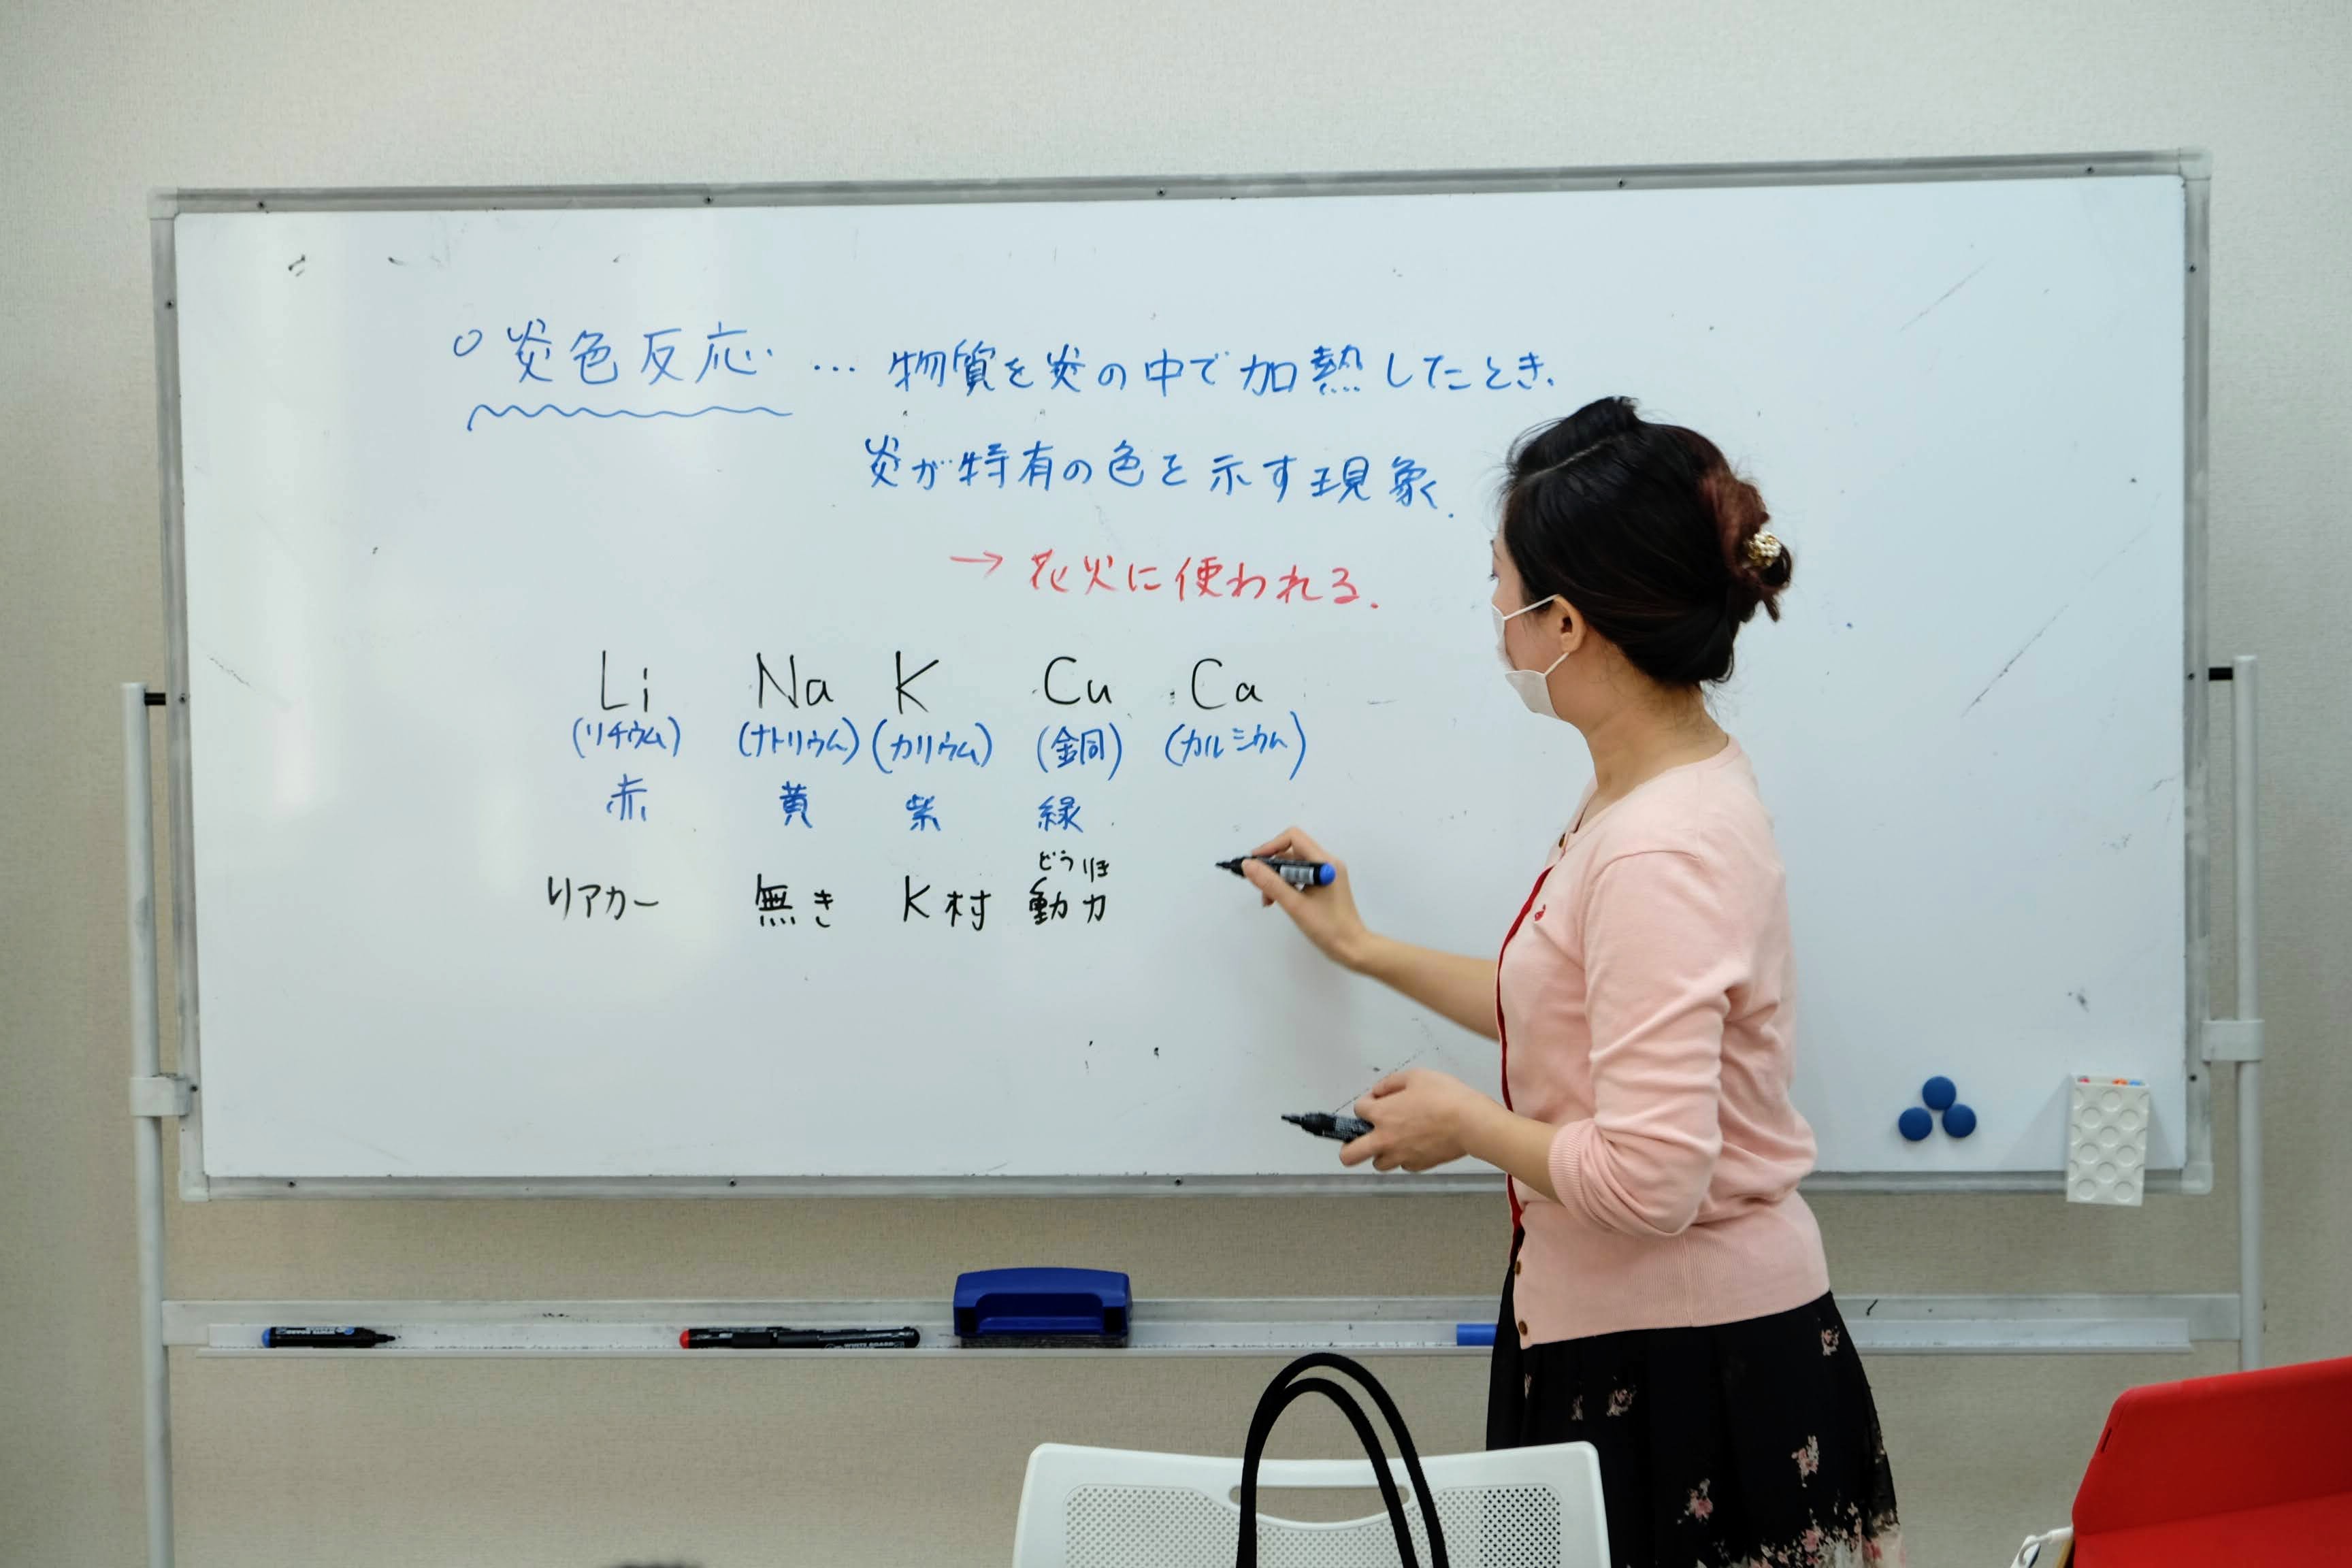 ○炎色反応 … 物質を炎の中で加熱したとき、
炎が特有の色を示す現象.
→ 花火に使われる.
Li Na K Cu Ca
(リチウム) (ナトリウム) (カリウム) (銅) (カルシウム)
赤 黄 紫 緑
どうりき
リアカー 無き K村 動力